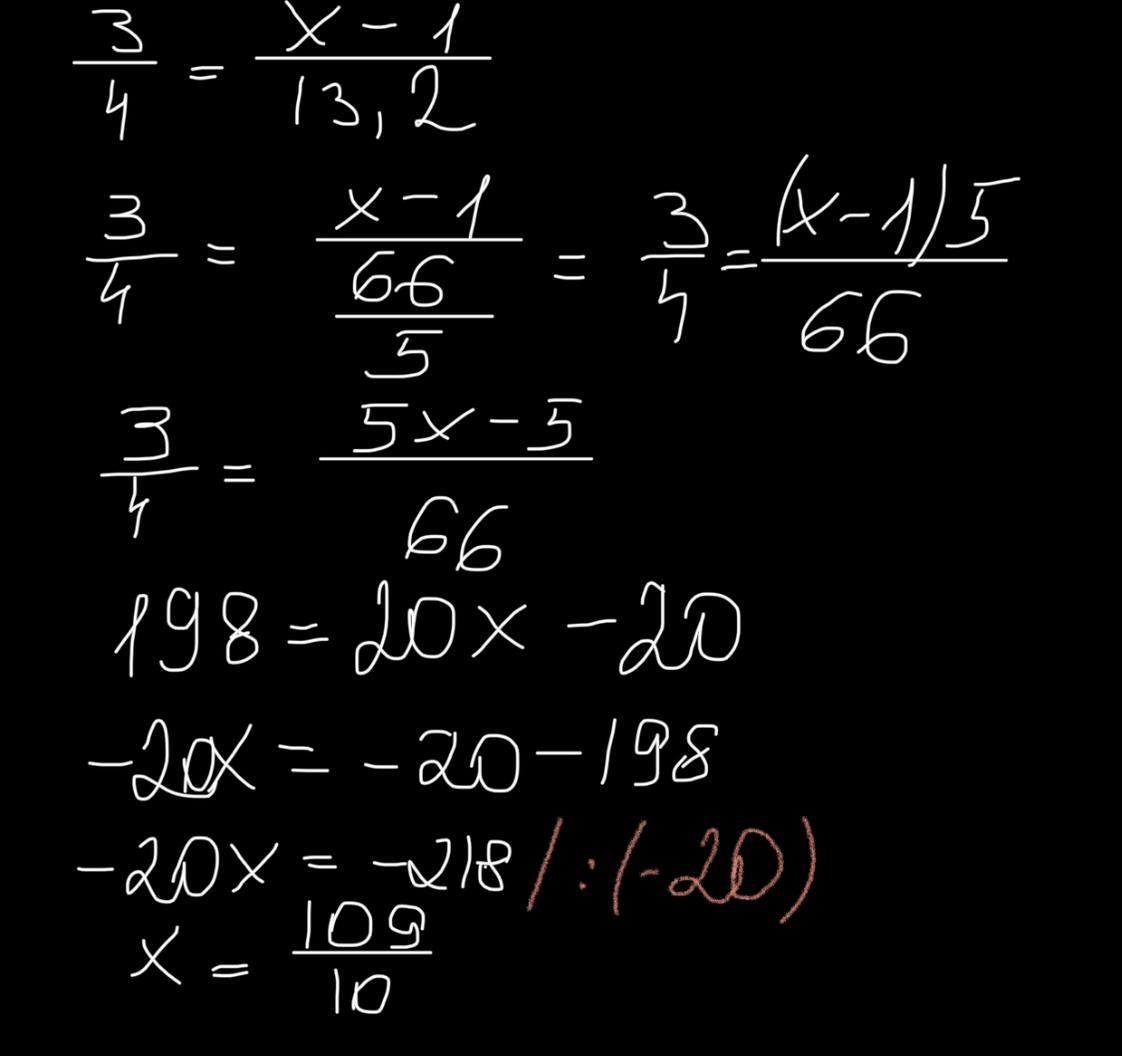 3/4 = (x - 1)/(13,2)
3/4 = (x - 1)/(66/5) = 3/4 = ((x - 1)5)/66
3/4 = (5x - 5)/66
198 = 20x - 20
-20x = -20 - 198
-20x = -218 / :(-20)
x = 109/10